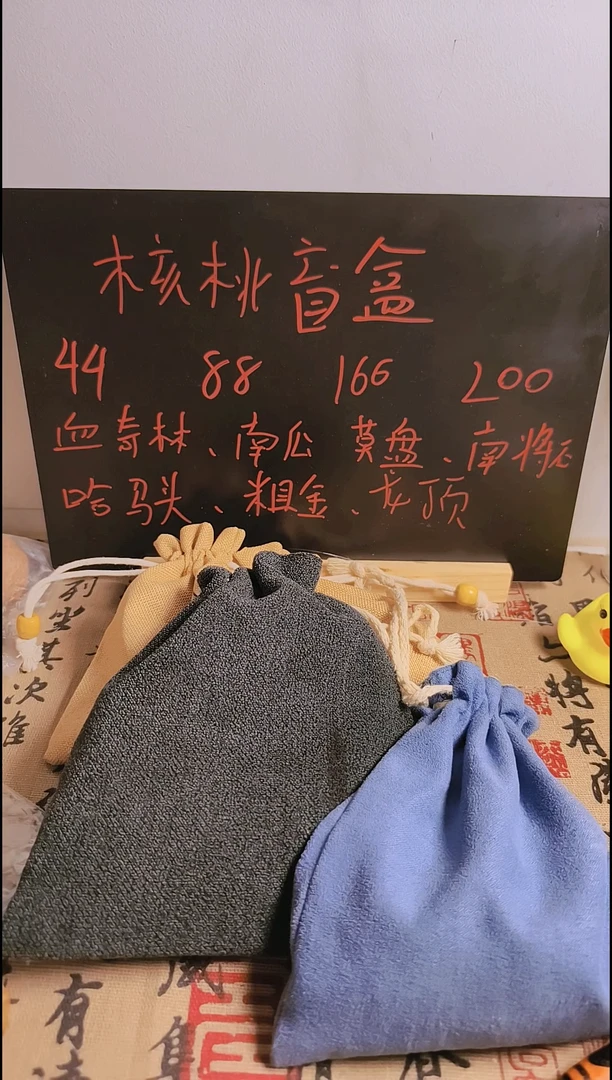 核桃盲盒
44 88 166 200
血奇林、南瓜 莫盘、南将石
哈马头、粗金、龙顶
将有
有